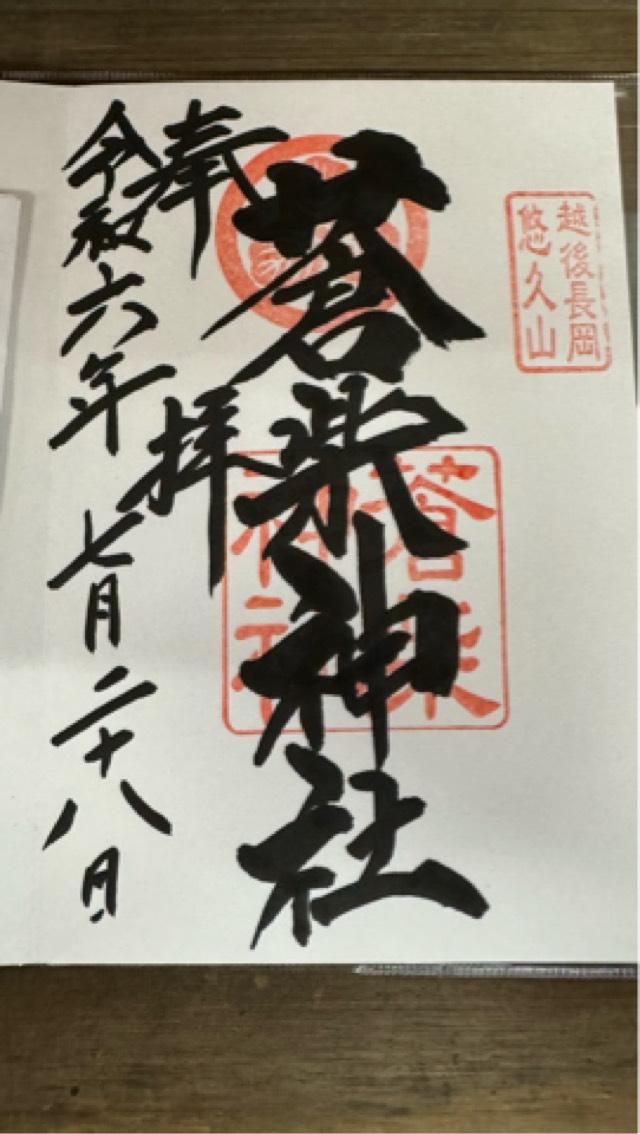 越後長岡
悠久山
蒼柴神社
蒼柴
神社
奉拝
令和六年七月二十八日